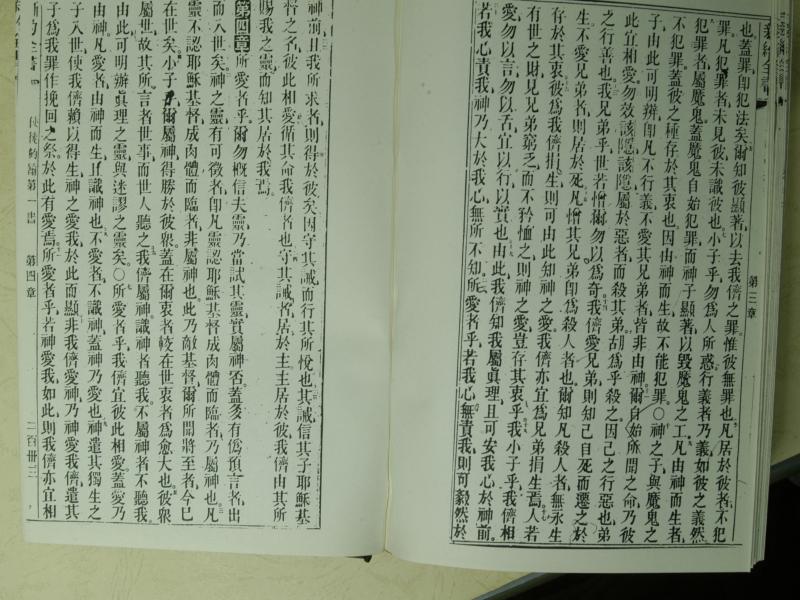 新約全書
第三章
也蓋罪卽犯法矣爾知彼顯著以去我儕之罪惟彼無罪也凡居於彼者不犯
罪凡犯罪者未見彼未識彼也小子乎勿爲人所惑行義者乃義如彼之義然
犯罪者屬魔鬼蓋魔鬼自始犯罪而神子顯著以毀魔鬼之工凡由神而生者
不犯罪蓋彼之種存於其衷也因由神而生故不能犯罪〇神之子與魔鬼之
子由此可明辨卽凡不行義不愛其兄弟者皆非由神爾自始所聞之命乃彼
此宜相愛勿效該隱該隱屬於惡者而殺其弟胡爲乎殺之因己之行惡也弟
之行善也我兄弟乎世若憎爾勿以爲奇我儕愛兄弟則知己自死而遷之於
生不愛兄弟者則居於死凡憎其兄弟卽爲殺人者也爾知凡殺人者無永生
存於其衷彼爲我儕捐生則可由此知神之愛我儕亦宜爲兄弟捐生焉人若
有世之財見兄弟窮乏而不矜恤之則神之愛豈存其衷乎我小子乎我儕相
愛勿以言勿以舌宜以行以實也由此我儕知我屬眞理且可安我心於神前
若我心責我神乃大於我心無所不知所愛者乎若我心無責我則可毅然於
神前且我所求者則得於彼矣因守其誡而行其所悅也其誡信其子耶穌基
督之名彼此相愛循其命我儕者也守其誡者居於主主居於彼我儕由其所
賜我之靈而知其居於我焉
第四章所愛者乎爾勿槪信夫靈乃當試其靈實屬神否蓋多有僞預言者出
而入世矣神之靈有可徵者卽凡靈認耶穌基督成肉體而臨者乃屬神也凡
靈不認耶穌基督成肉體而臨者非屬神也此乃敵基督爾所聞將至者今已
在世矣小子乎爾屬神得勝於彼衆蓋在爾衷者較在世衷者爲愈大也彼衆
屬世故其所言者世事而世人聽之我儕屬神識神者聽我不屬神者不聽我
由此可明辨眞理之靈與迷謬之靈矣〇所愛者乎我儕宜彼此相愛蓋愛乃
由神凡愛者由神而生且識神也不愛者不識神蓋神乃愛也神遣其獨生之
子入世使我儕賴以得生神之愛我於此而顯非我儕愛神乃神愛我儕遣其
子爲我罪作挽回之祭於此有愛焉所愛者乎若神愛我如此則我儕亦宜相
使徒約翰第一書
第四章
二百卅三